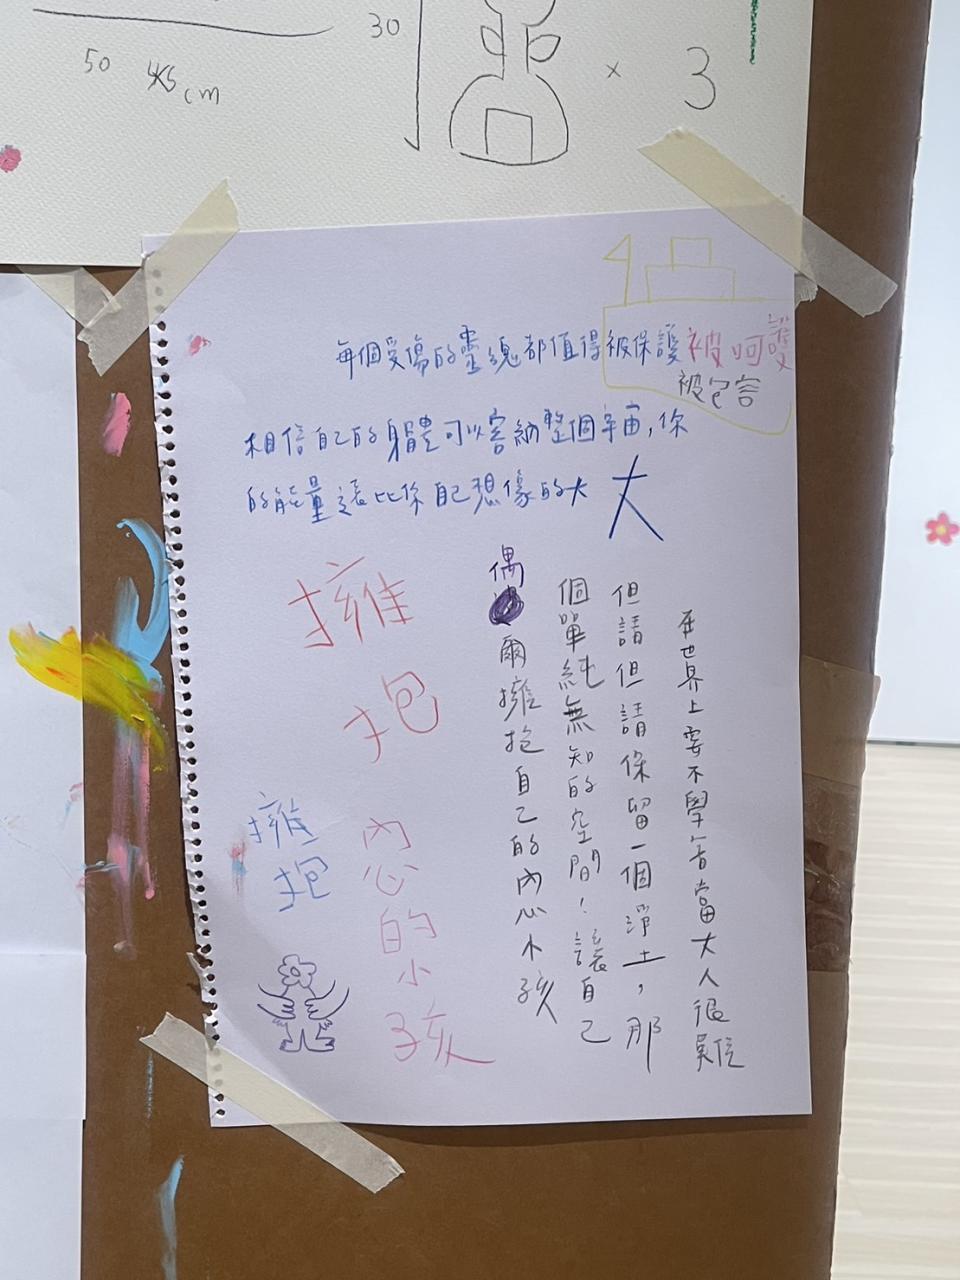 50 45cm
30
× 3
每個受傷的靈魂都值得被保護被呵護
被包容
相信自己的身體可以容納整個宇宙,你
的能量遠比你自己想像的大 大
在世界上要不學會當大人很難
但請但請保留一個淨土,那
個單純無知的空間!讓自己
偶爾擁抱自己的內心小孩
擁抱
內心的小孩
擁抱